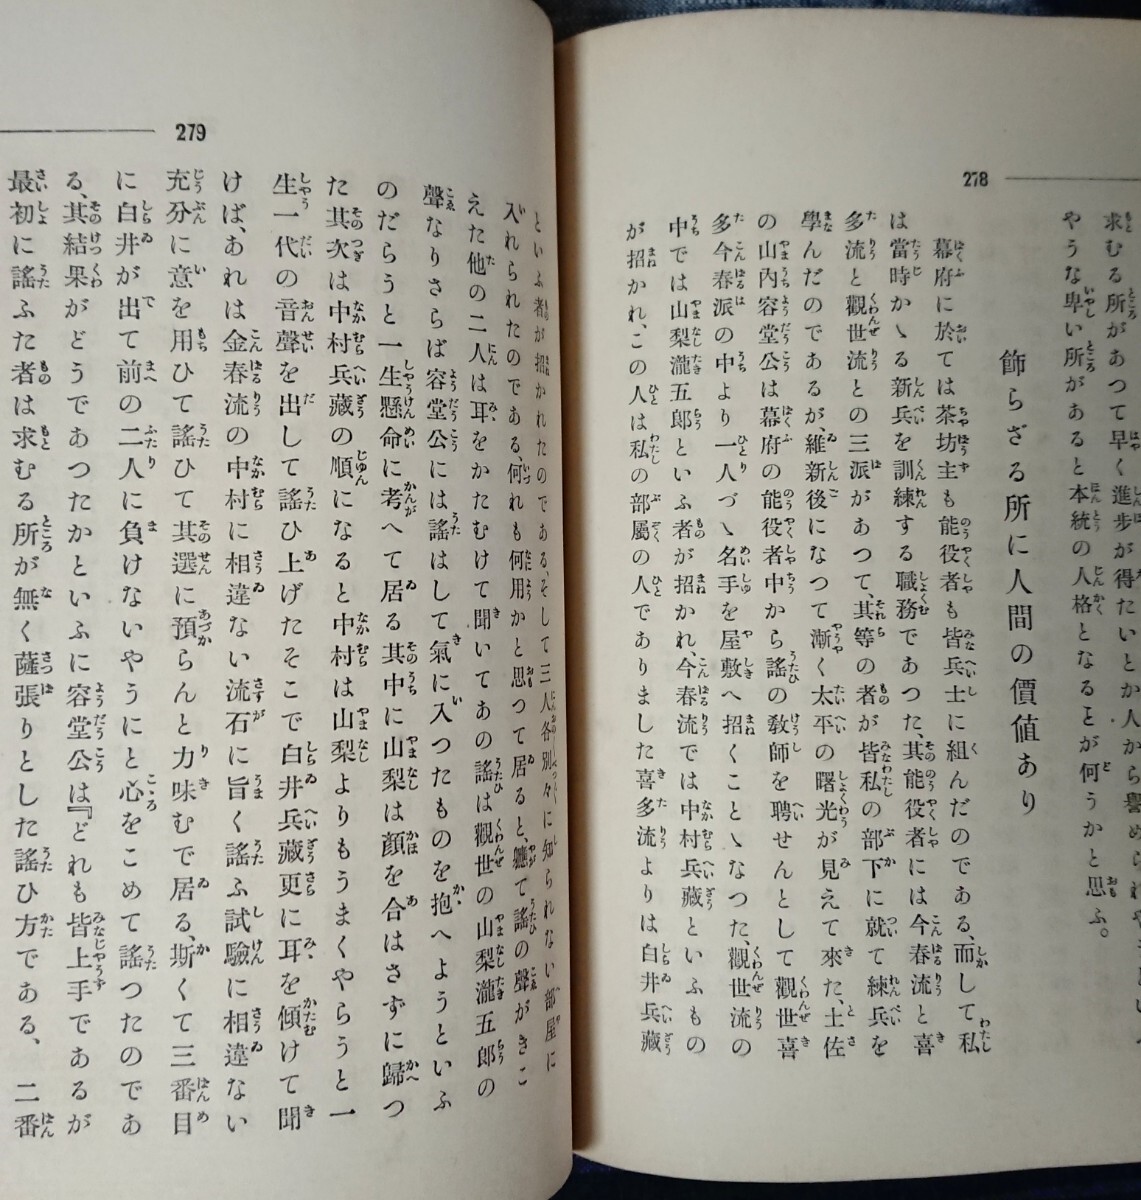 278
求むる所があつて早く進歩が得たいとか人から譽められ
やうな卑い所があると本統の人格となることが何うかと思ふ。
飾らざる所に人間の價値あり
幕府に於ては茶坊主も能役者も皆兵士に組んだのである、而して私
は當時かゝる新兵を訓練する職務であつた、其能役者には今春流と喜
多流と觀世流との三派があつて、其等の者が皆私の部下に就て練兵を
學んだのであるが、維新後になつて漸く太平の曙光が見えて來た、土佐
の山内容堂公は幕府の能役者中から謠の教師を聘せんとして觀世喜
多今春派の中より一人づゝ名手を屋敷へ招くことゝなつた、觀世流の
中では山梨瀧五郎といふ者が招かれ、今春流では中村兵藏といふもの
が招かれ、この人は私の部屬の人でありました喜多流よりは白井兵藏
279
といふ者が招かれたのである、そして三人各別々に知られない部屋に
入れられたのである、何れも何用かと思つて居ると、軈て謠の聲がきこ
えた他の二人は耳をかたむけて聞いてあの謠は觀世の山梨瀧五郎の
聲なりさらば容堂公には謠はして氣に入つたものを抱へようといふ
のだらうと一生懸命に考へて居る其中に山梨は顔を合はさずに歸つ
た其次は中村兵藏の順になると中村は山梨よりもうまくやらうと一
生一代の音聲を出して謠ひ上げたそこで白井兵藏更に耳を傾けて聞
けば、あれは金春流の中村に相違ない流石に旨く謠ふ試驗に相違ない
充分に意を用ひて謠ひて其選に預らんと力味むで居る、斯くて三番目
に白井が出て前の二人に負けないやうにと心をこめて謠つたのであ
る、其結果がどうであつたかといふに容堂公は『どれも皆上手であるが
最初に謠ふた者は求むる所が無く薩張りとした謠ひ方である、二番